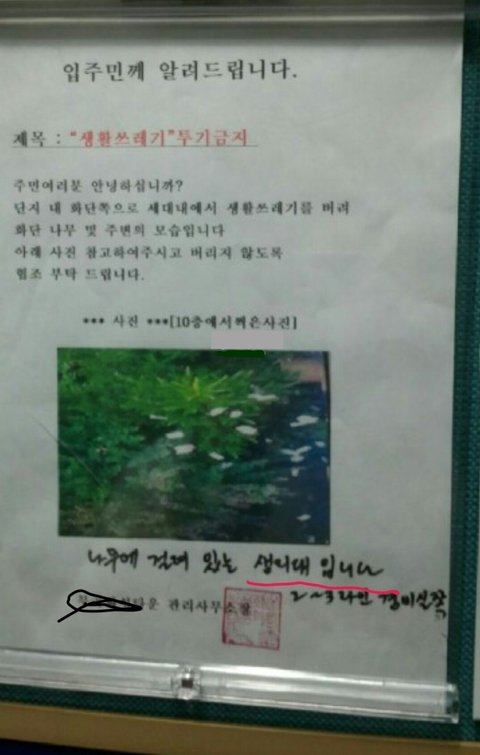 입주민께 알려드립니다.
제목 : "생활쓰레기"투기금지
주민여러분 안녕하십니까?
단지 내 화단쪽으로 세대내에서 생활쓰레기를 버려
화단 나무 및 주변의 모습입니다
아래 사진 참고하여주시고 버리지 않도록
협조 부탁 드립니다.
*** 사진 ***[10층에서찍은사진]
나무에 걸려 있는 생리대 입니다
2~3라인 경비실쪽
타운 관리사무소장